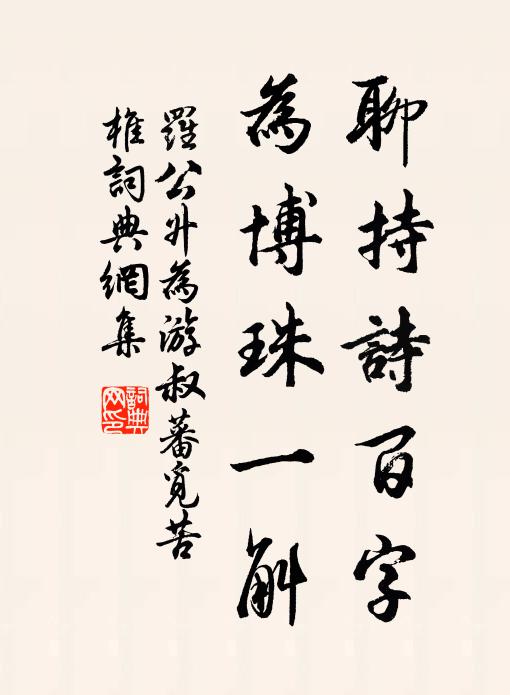 聊持詩百字
為博珠一斛
羅公升為游叔蕃覓苦
椎詞典網集
詞典
网印